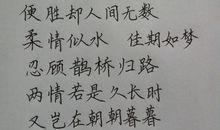 便胜却人间无数
柔情似水 佳期如梦
忍顾鹊桥归路
两情若是久长时
又岂在朝朝暮暮